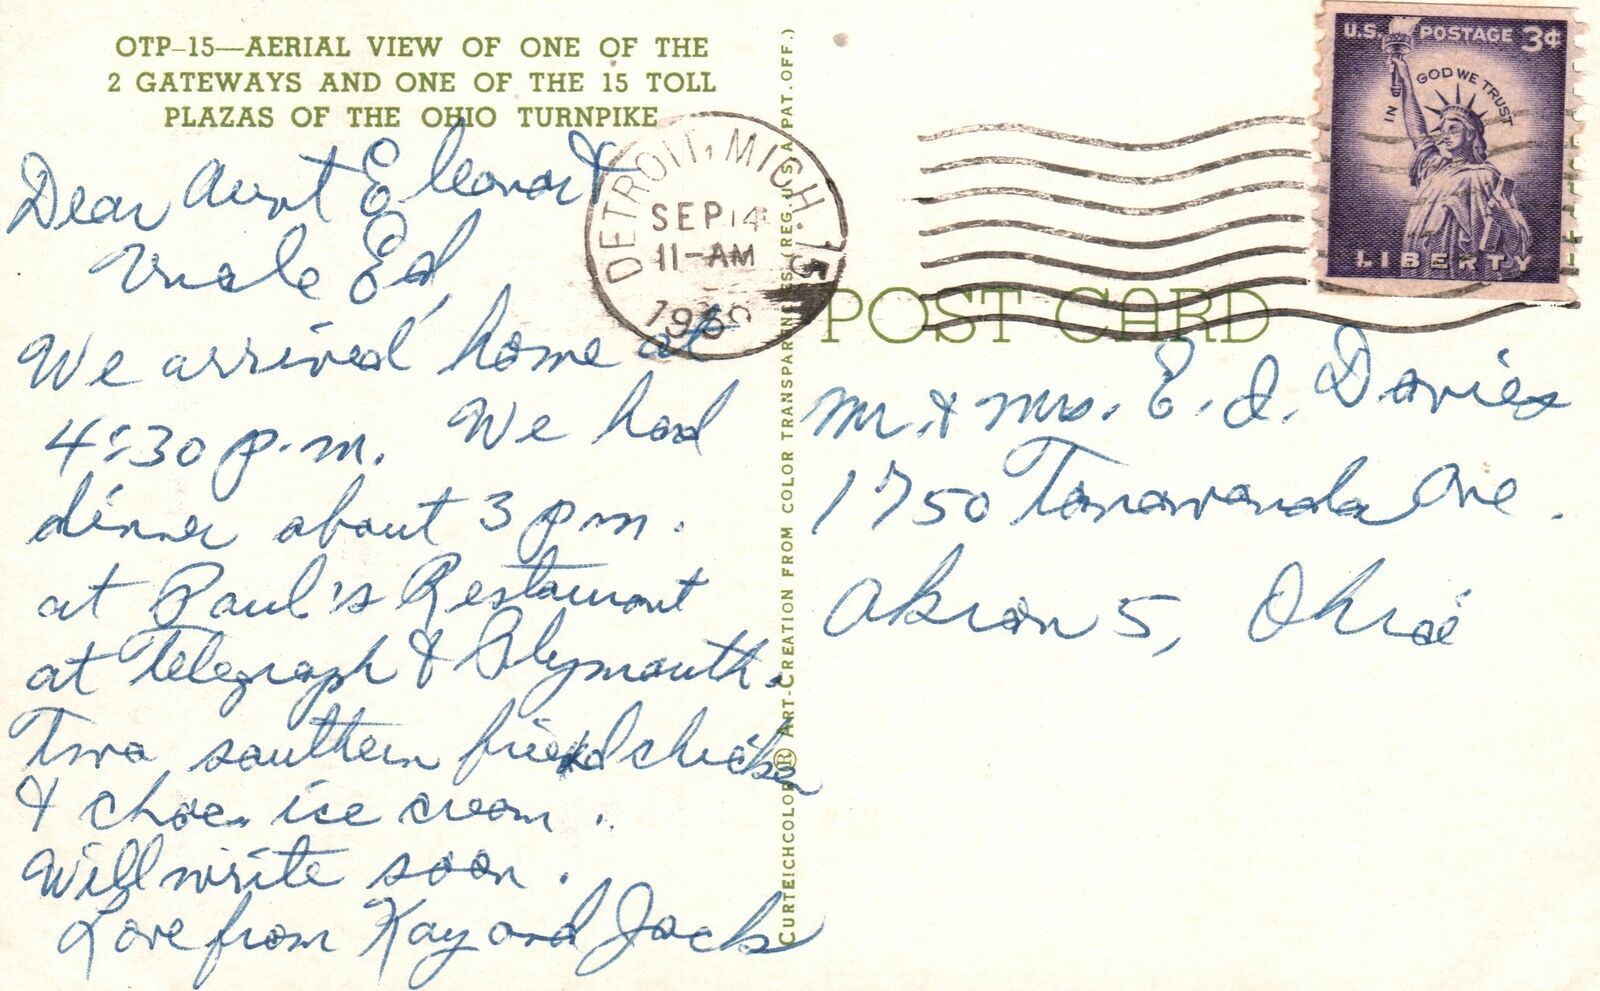 OTP-15—AERIAL VIEW OF ONE OF THE
2 GATEWAYS AND ONE OF THE 15 TOLL
PLAZAS OF THE OHIO TURNPIKE
Dear Aunt Eleanor &
Uncle Ed,
We arrived home at
4:30 p.m. We had
dinner about 3 p.m.
at Paul's Restaurant
at Telegraph & Plymouth.
Two southern fried chicken
& choc. ice cream.
Will write soon.
Love from Kay and Jack
CURTEICHCOLOR® ART-CREATION FROM COLOR TRANSPARENCIES (REG. U.S.A. PAT. OFF.)
DETROIT, MICH. 15
SEP 14
11-AM
U.S. POSTAGE 3¢
IN GOD WE TRUST
LIBERTY
POST CARD
Mr. & Mrs. E. J. Davies
1750 Tonawanda Ave.
Akron 5, Ohio